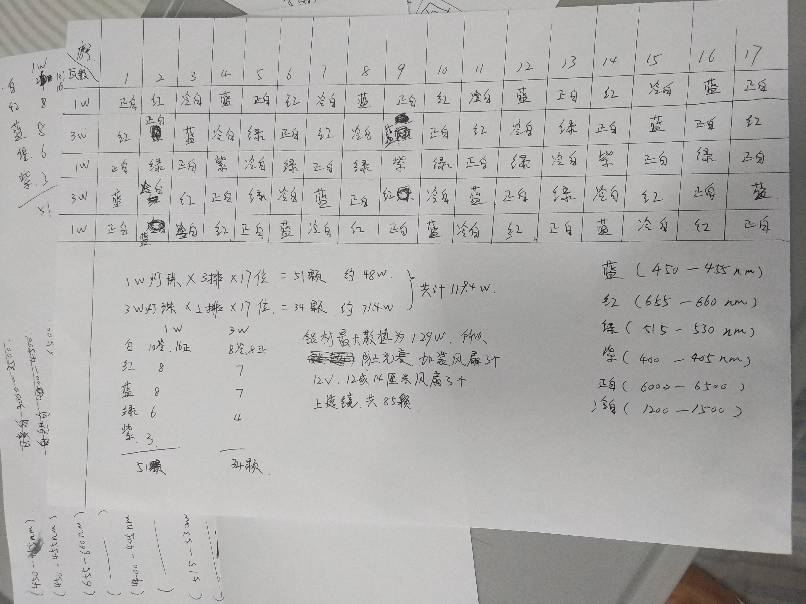 瓦数 1 2 3 4 5 6 7 8 9 10 11 12 13 14 15 16 17
1W 正白 红 冷白 蓝 正白 红 冷白 蓝 正白 红 冷白 蓝 正白 红 冷白 蓝 正白
3W 红 正白 蓝 冷白 绿 正白 红 冷白 绿 正白 红 冷白 绿 正白 蓝 正白 红
1W 正白 绿 正白 紫 冷白 绿 正白 绿 紫 绿 正白 绿 冷白 紫 正白 绿 正白
3W 蓝 冷白 红 正白 绿 冷白 蓝 正白 红 冷白 蓝 正白 绿 冷白 红 正白 蓝
1W 正白 蓝 冷白 红 正白 蓝 冷白 红 正白 蓝 冷白 红 正白 蓝 冷白 红 正白
1W灯珠×3排×17位=51颗 约48W
3W灯珠×2排×17位=34颗 约71.4W
共计119.4W
1W 3W
白
红 8 7
蓝 8 7
绿 6 4
紫 3
51颗 34颗
铝材最大散热为129W
加装风扇3个
12V 12或14厘米风扇3个
共85颗
蓝(450-455nm)
红(655-660nm)
绿(515-530nm)
紫(400-405nm)
正白(6000-6500)
冷白(1200-1500)
1W
白
红 8
蓝 8
绿 6
紫 3
51
(450-455nm)
(450-455nm)
(655-660nm)
(400-405nm)